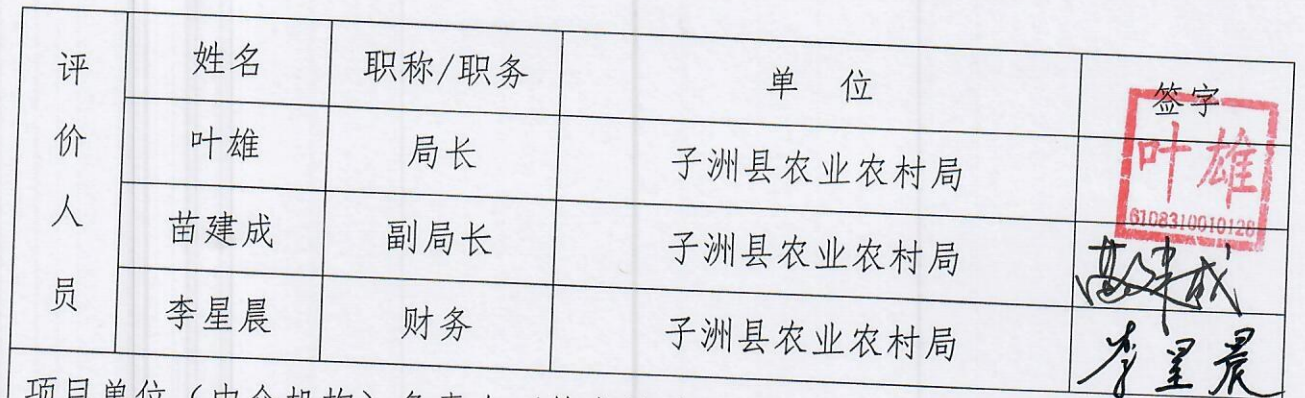 评价人员
姓名 职称/职务 单 位 签字
叶雄 局长 子洲县农业农村局 叶雄
6108310010128
苗建成 副局长 子洲县农业农村局 苗建成
李星晨 财务 子洲县农业农村局 李星晨
项目单位（中介机构）负责人